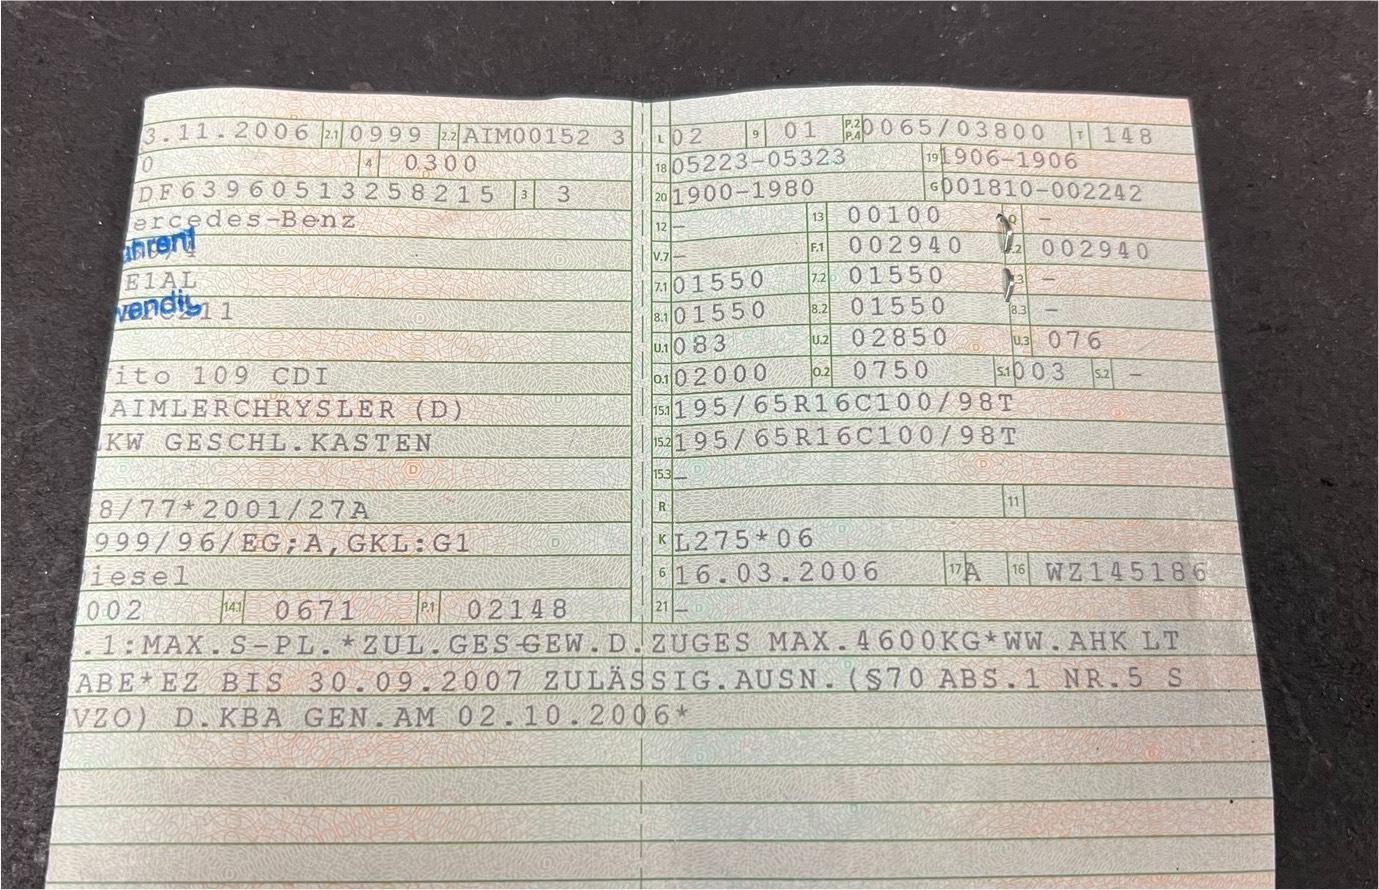 3.11.2006 2.1 0999 2.2 AIM00152 3 L 02 9 01 P.2 P.4 0065/03800 T 148
0 4 0300 18 05223-05323 19 1906-1906
DF63960513258215 3 3 20 1900-1980 G 001810-002242
ercedes-Benz 12 – 13 00100 Q –
ahren! V.7 – F.1 002940 F.2 002940
E1AL 7.1 01550 7.2 01550 7.3 –
wendig 11 8.1 01550 8.2 01550 8.3 –
U.1 083 U.2 02850 U.3 076
ito 109 CDI O.1 02000 O.2 0750 S.1 003 S.2 –
AIMLERCHRYSLER (D) 15.1 195/65R16C100/98T
LKW GESCHL.KASTEN 15.2 195/65R16C100/98T
15.3 –
8/77*2001/27A R 11
999/96/EG;A,GKL:G1 K L275*06
iesel 6 16.03.2006 17 A 16 WZ145186
002 14.1 0671 P.1 02148 21 –
.1:MAX.S-PL.*ZUL.GES-GEW.D.ZUGES MAX.4600KG*WW.AHK LT
ABE*EZ BIS 30.09.2007 ZULÄSSIG.AUSN.(§70 ABS.1 NR.5 S
VZO) D.KBA GEN.AM 02.10.2006*